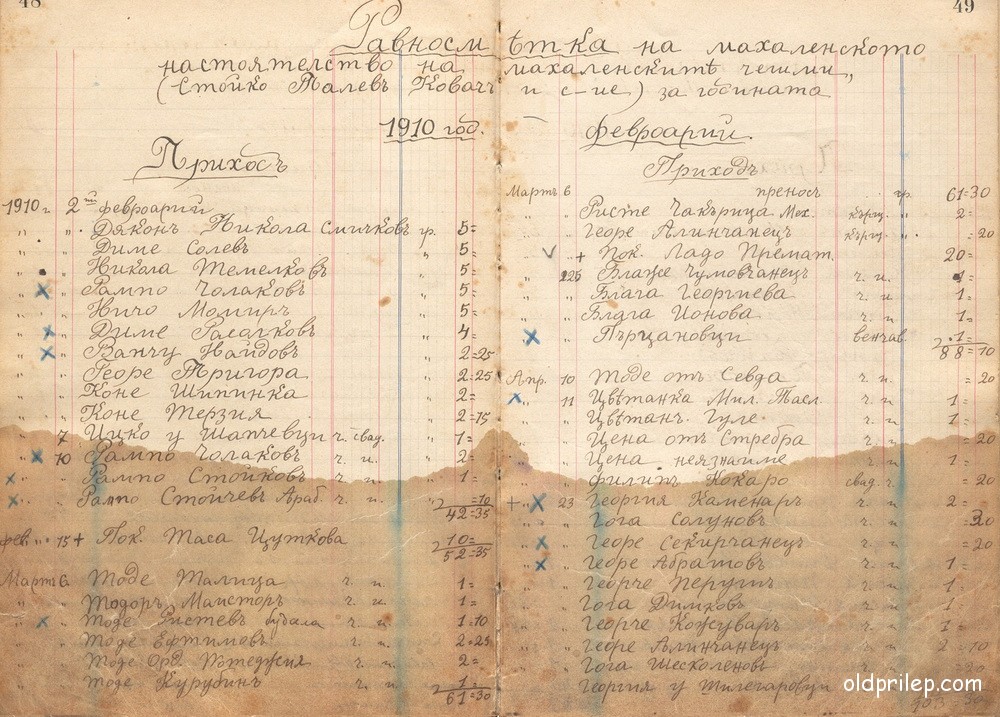 48
49
Равносмѣтка на махаленското
настоятелство на махаленскитѣ чешми,,
(Стойко Талевъ Ковачъ и с-ие) за годината
1910 год. февроарий.
Приходъ
1910 г. 2ий февроарий
" " Дяконъ Никола Смичковъ гр. 5=
" " Диме Солевъ " 5=
" Никола Темелковъ " 5=
" х " Рампо Чолаковъ " 5=
" " Ничо Момиръ " 5=
" х " Диме Расалковъ " 4=
" х " Ванчу Найдовъ " 2=25
" " Георе Тригора " 2=25
" " Коне Шипинка " 2=
" " Коне Терзия " 2=15
" 7 Ицко у Шапчевци ч. свад. " 1=
" х 10 Рампо Чолаковъ ч. и. " 2=
х " Рампо Стойковъ ч. и " 1=
х " " Рампо Стойчевъ Араб. ч. и " =10
42=35
фев. " 15 + Пок. Таса Цуткова " 10=
52=35
Мартъ 6 Тоде Талица ч. и. 1=
" " Тодоръ Маисторъ ч. и. 1=
" х " Тоде Ристевъ будала ч. и 1=10
" " Тоде Ефтимовъ ч. и 2=25
" " Тоде Орд. ч. и 2=
" " Тоде Курубинъ ч. и 1=
61=30
Приходъ
Мартъ 6 преносъ гр. 61=30
" " Ристе Чакърица Мох. кърщ. " 2=
" " Георе Алинчанецъ кърщ. " =20
" + Пок. Ладо Премат. 20=
" 225 Блаже Чумовчанецъ ч. и. 1=
" " Блага Георгиева ч. и 1=
" " Блага Йонова ч. и 1=
х " Пърцановци венчав. 1=
88=10
Апр. 10 Тоде отъ Севда ч. и. =20
х " 11 Цвѣтанка Мил. Тасл. ч. и 1=
" " Цвѣтанъ Гуле ч. и 1=
" " Цена отъ Стребра ч. и =20
" " Цена неязнаиме ч. и 1=
" " Филипъ Кокаро свад. ч. =20
+ " х 23 Георгия Каменаръ ч. и 2=
" " Гога Солуновъ ч. и =20
" х " Георе Секирчанецъ ч. и =20
" х " Георе Абрашовъ ч. и 1=
" " Георче Перушъ ч. и 1=
" " Гога Димковъ ч. и 1=
" " Георче Кожуваръ ч. и 1=
" " Георе Алинчанецъ ч. и 2=10
" " Гога Шесколеновъ ч. и =20
" " Георгия у Тилегаровци
oldprilep.com